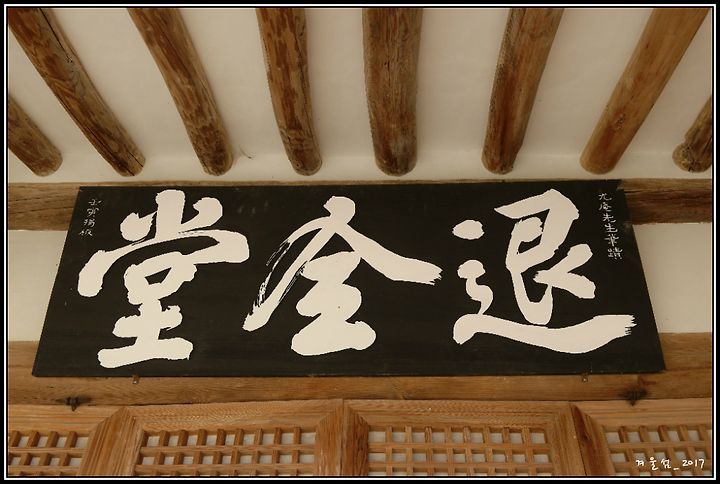 尤庵先生筆蹟
退全堂
揭板
겨울섬_2017